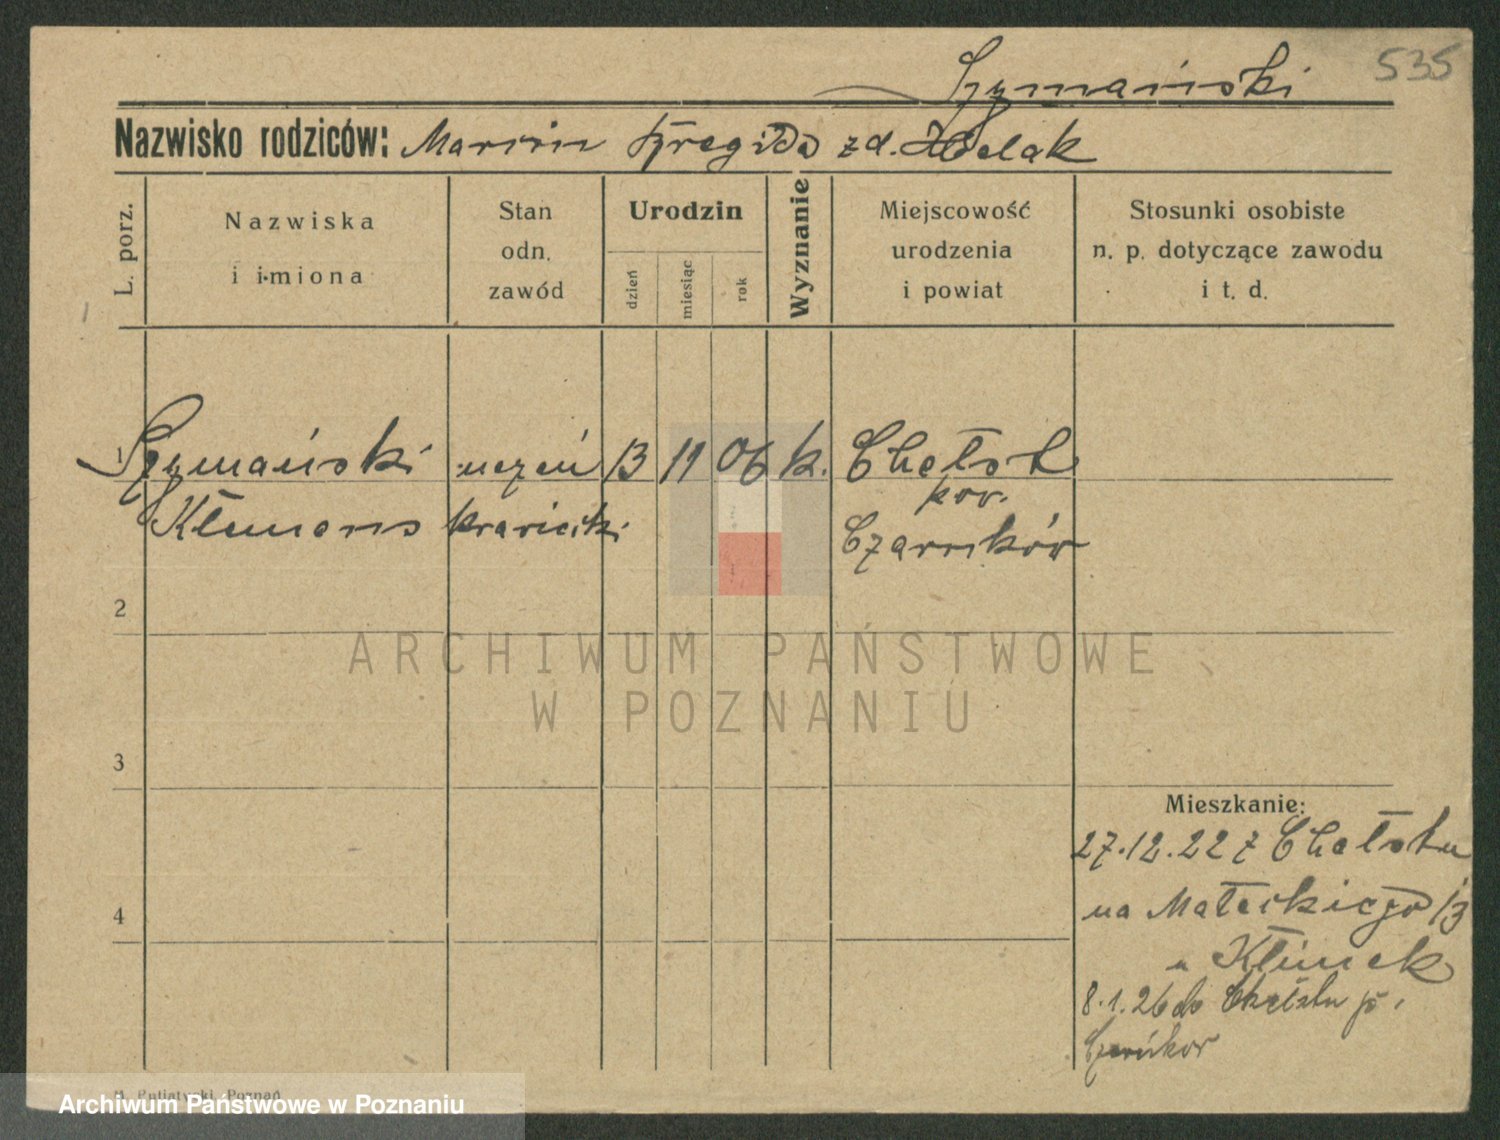 535
Szymański
Nazwisko rodziców: Marcin Brygida zd. Helak
L. porz.
Nazwiska
i imiona
Stan
odn.
zawód
Urodzin
dzień
miesiąc
rok
Wyznanie
Miejscowość
urodzenia
i powiat
Stosunki osobiste
n. p. dotyczące zawodu
i t. d.
1 Szymański uczeń 13 11 06 k. Chełst
pow.
Klemens krawiecki Czarnków
2
ARCHIWUM PAŃSTWOWE
W POZNANIU
3
Mieszkanie:
27.12.22 z Chełstu
na Małeckiego 13
u Klimek
4
8.1.26 do Chełstu p.
Czarnkow
Poznań
Archiwum Państwowe w Poznaniu